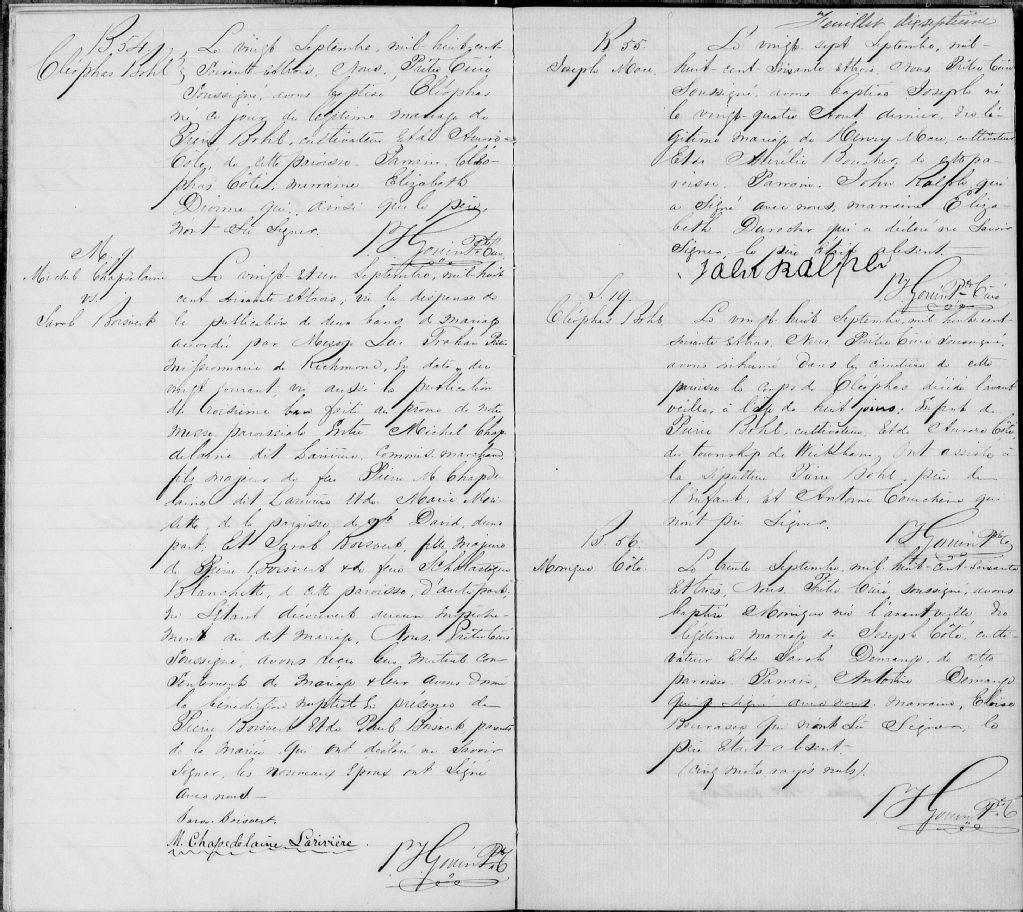 B. 54
Cléophas Bohl
Le vingt Septembre, mil huit cent
Soixante et trois, Nous, Prêtre Curé
Soussigné, avons baptisé Cléophas
né ce jour du légitime mariage de
Pierre Bohl, cultivateur et de Aurore
Coté, de cette paroisse. Parrain, Cléo-
phas Coté; marraine Elizabeth
Dionne qui, ainsi que le père,
n'ont su signer.
Gouin Ptre Curé
M. 9
Michel Chapdelaine
vs.
Sarah Boisvert
Le vingt et un Septembre, mil huit
cent soixante et trois, vu la dispense de
la publication de deux bans de mariage
accordée par Messire Luc Trahan Ptre
Missionnaire de Richmond, en date du
vingt courant, vu aussi la publication
du troisième ban faite au prône de notre
messe paroissiale Entre Michel Chap
delaine dit Larivière, Commis marchand,
fils majeur de feu Pierre M. Chapde
laine dit Larivière et de Marie Mori
sette, de la paroisse de St. David, d'une
part; Et Sarah Boisvert, fille mineure
de Pierre Boisvert & de feue Scholastique
Blanchette, de cette paroisse, d'autre part;
ne s'étant découvert aucun empêche-
ment au dit mariage, Nous, Prêtre Curé
Soussigné, avons reçu leur mutuel con
sentement de mariage & leur avons donné
la bénédiction nuptiale en présence de
Pierre Boisvert et de Boisvert parents
de la mariée qui ont déclaré ne savoir
signer, les nouveaux époux ont signé
avec nous—
Sara Boisvert.
M. Chapedelaine Larivière.
Gouin Ptre C
Feuillet dixseptième
B. 55
Joseph Mace
Le vingt sept Septembre, mil-
huit-cent soixante et trois, Nous Prêtre Curé
Soussigné, avons baptisé Joseph né
le vingt-quatre Aout dernier, du lé-
gitime mariage de Henry Mace, cultivateur
Et de Aurélie Boucher, de cette pa-
roisse, Parrain, John Ralphe, qui
a signé avec nous, marraine Eliza-
beth Durocher qui a déclaré ne savoir
Signer, le père était absent.
Gouin Ptre Curé
S. 19.
Cléophas Bohl
Le vingt huit Septembre, mil huit cent
Soixante et trois, Nous, Prêtre Curé soussigné,
avons inhumé dans le cimetière de cette
paroisse le corps de Cléophas décédé l'avant
veille, à l'âge de huit jours; Enfant de
Pierre Bohl, cultivateur, et de Aurore Côté,
du township de Wickham; ont assisté à
la sépulture Pierre Bohl, père de
l'infant, et Antoine Couchene qui
n'ont pu signer.
Gouin Ptre C
B. 56.
Monique Côté.
Le trente Septembre, mil huit-cent-soixante
et trois, Nous, Prêtre Curé, soussigné, avons
baptisé Monique née l'avant veille, du
légitime mariage de Joseph Côté, culti-
vateur et de Sarah Demange, de cette
paroisse Parrain, Antoine Demange
qui a signé avec nous, marraine, Eloïse
qui n'ont su signer, le
père était absent.
(cinq mots rayés nuls).
Gouin Ptre C